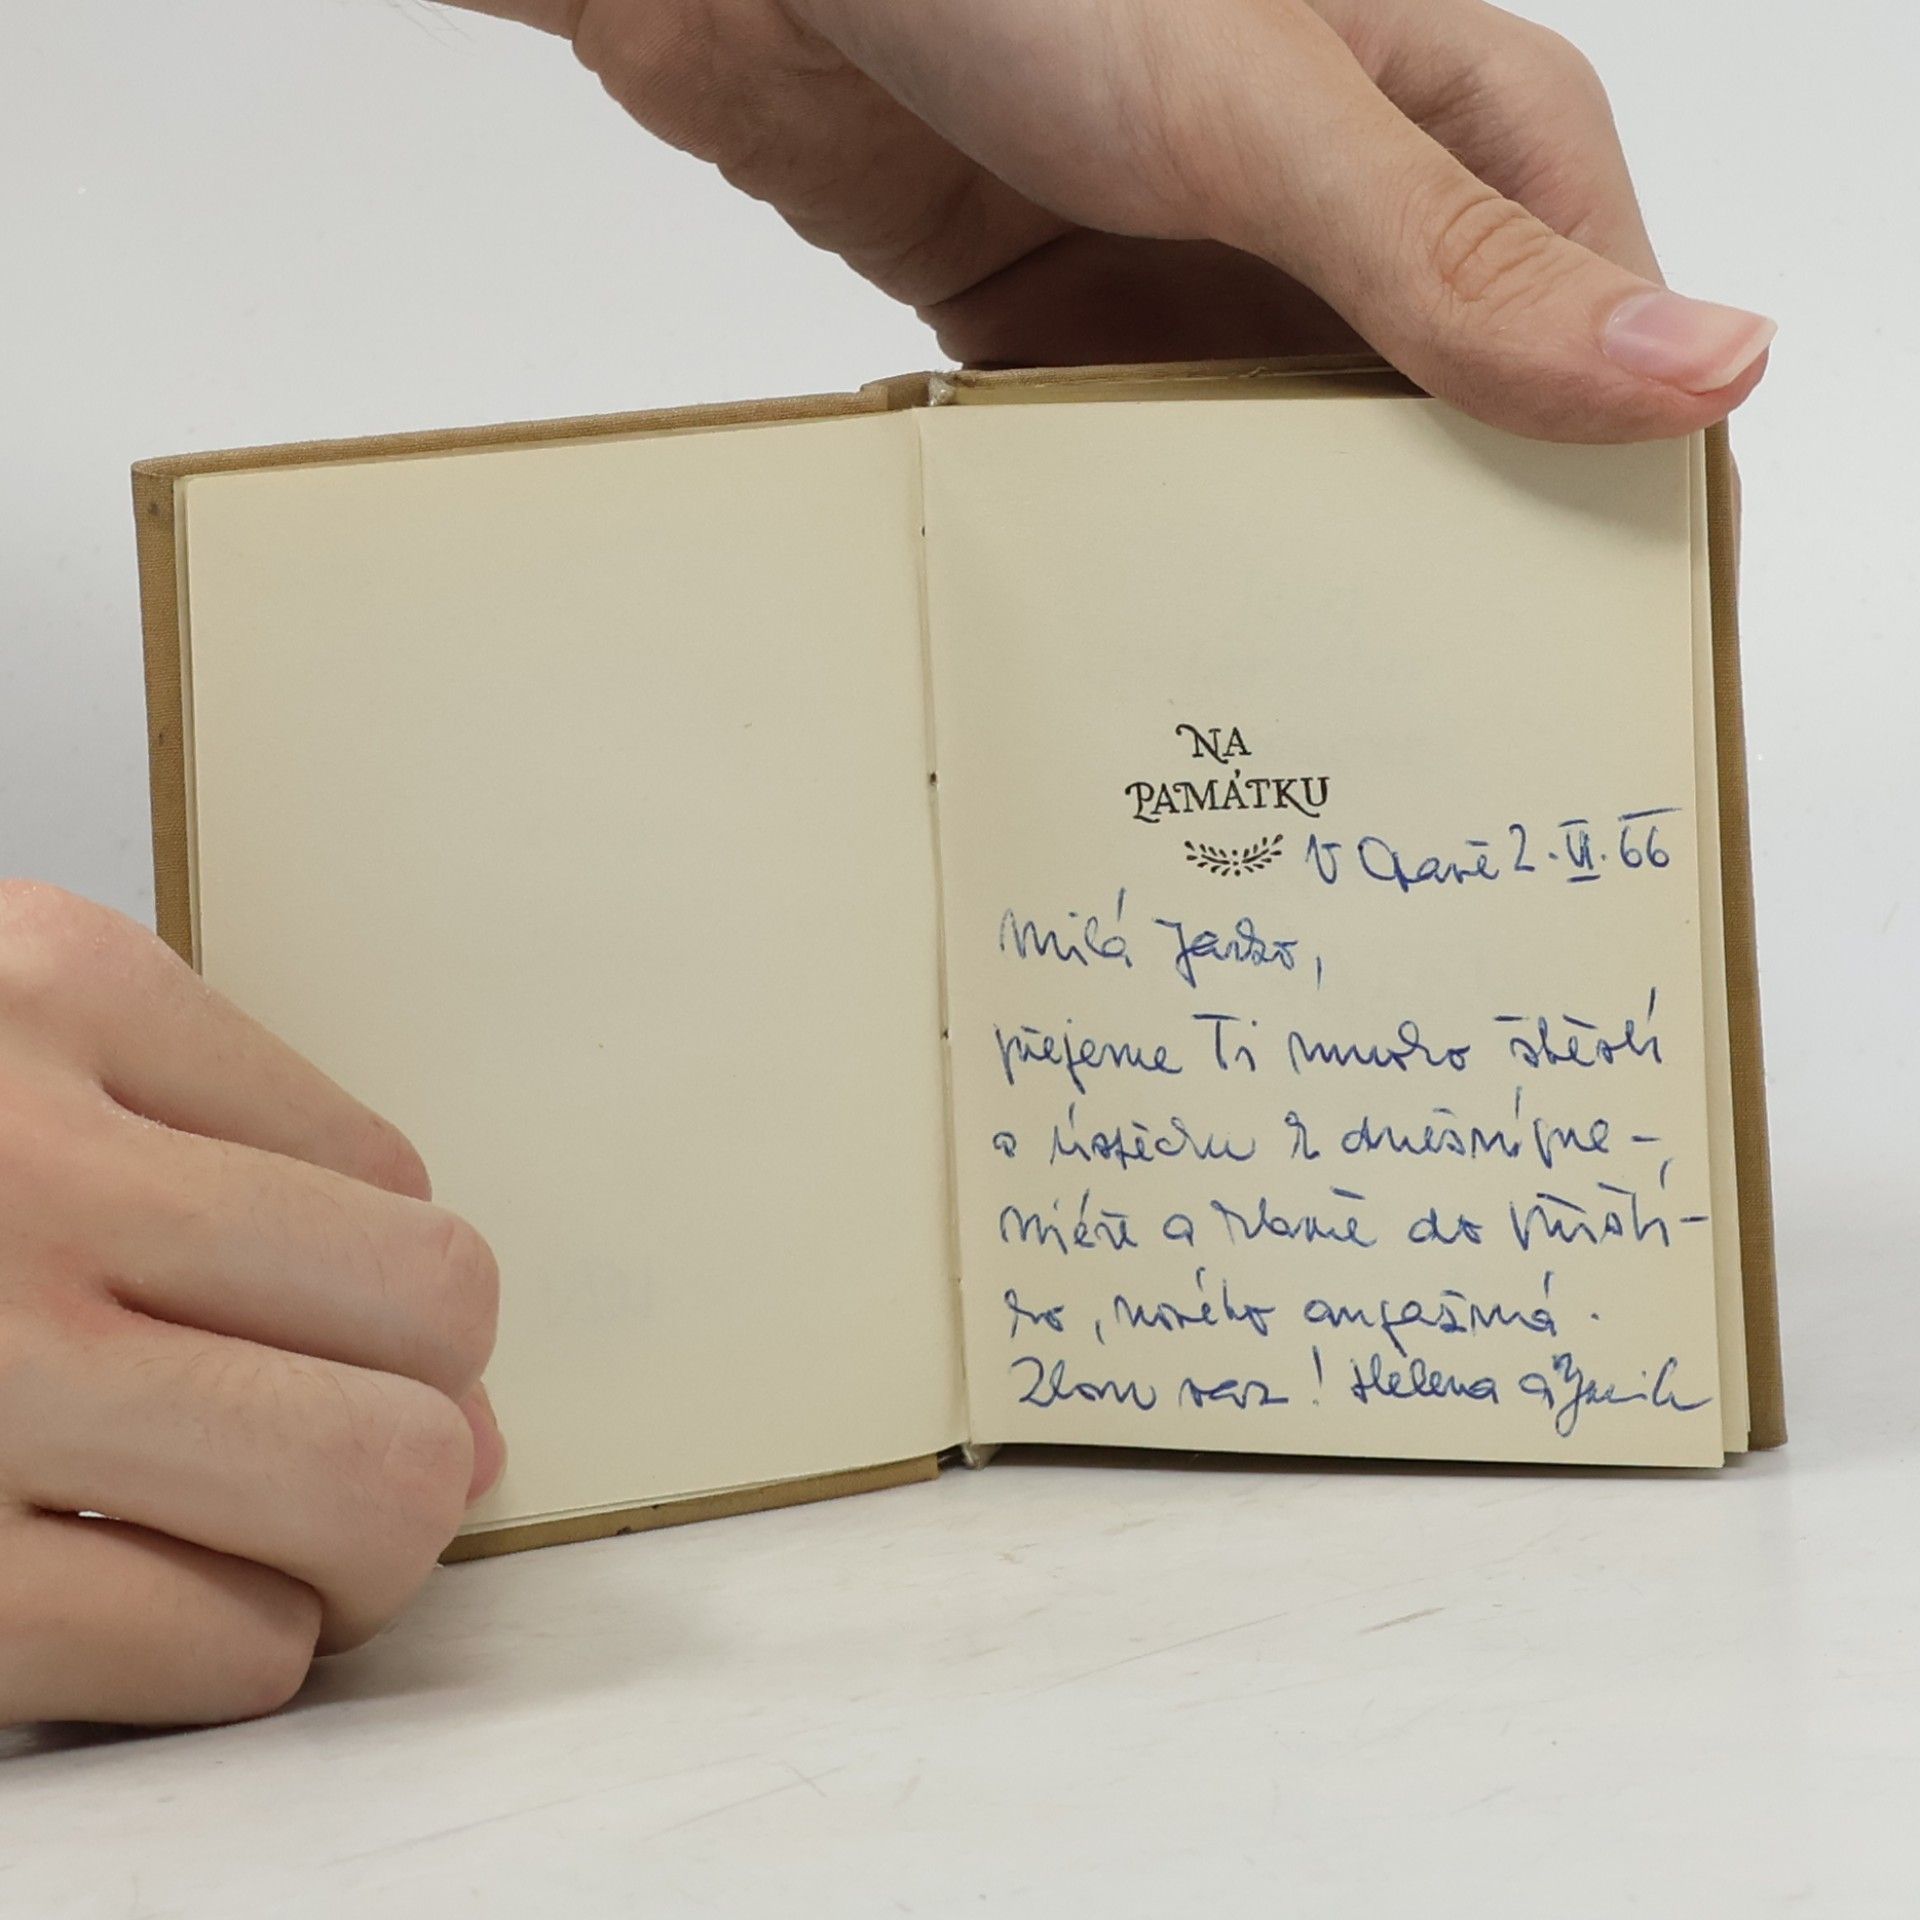 NA
PAMÁTKU
V Opavě 2. VI. 66
Milá Jarko,
přejeme Ti mnoho štěstí
a úspěchu k dnešní pre-
miéře a hlavně do příští-
ho, nového angažmá.
Zlom vaz! Helena a